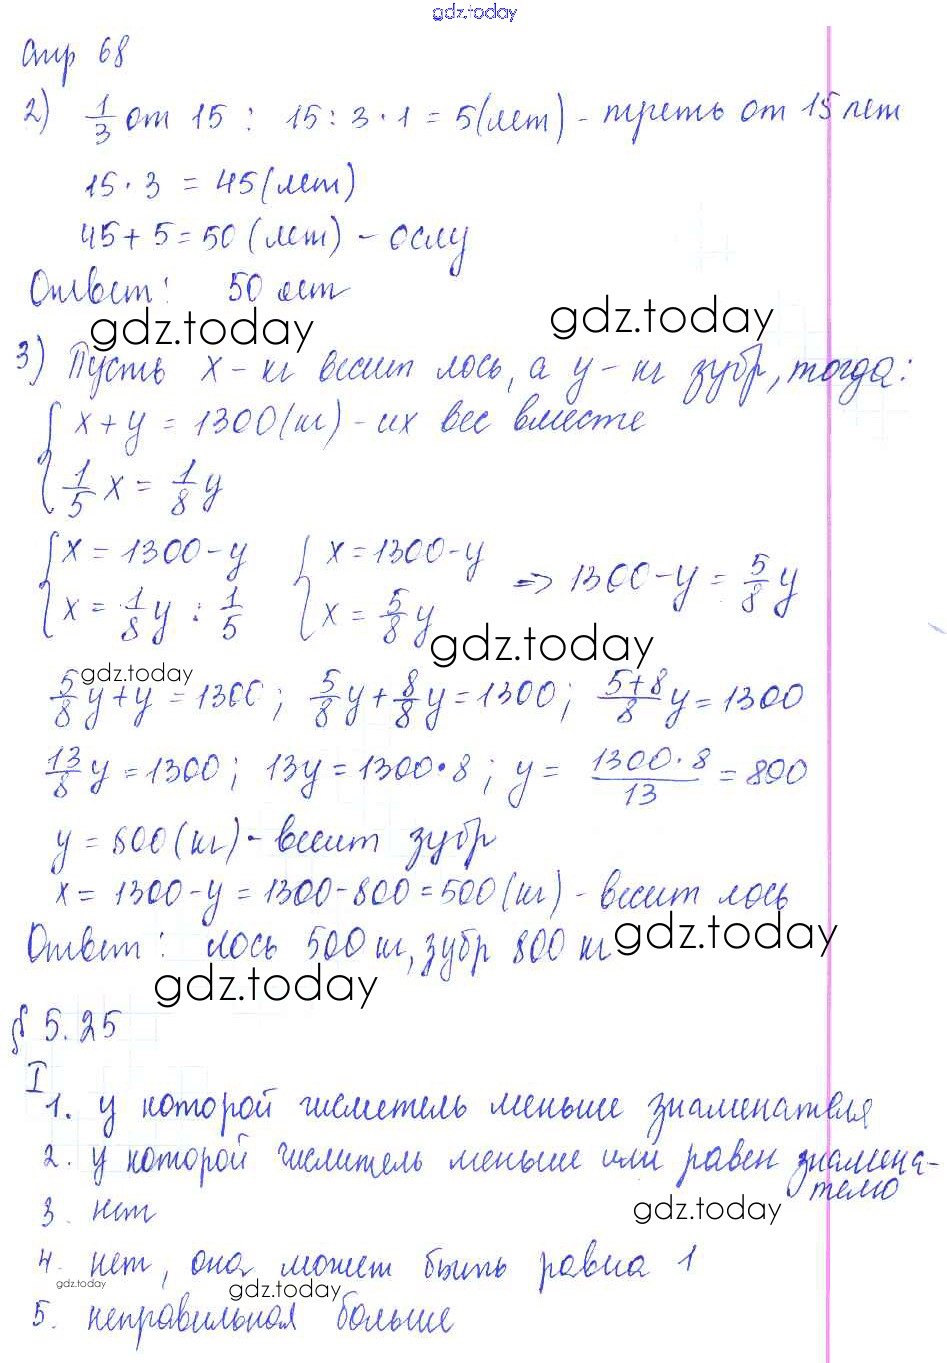 gdz.today
Стр 68
2) 1/3 от 15 : 15 : 3 · 1 = 5 (лет) - треть от 15 лет
15 · 3 = 45 (лет)
45 + 5 = 50 (лет) - ослу
Ответ: 50 лет
gdz.today gdz.today
3) Пусть x - кг весит лось, а y - кг зубр, тогда:
{ x + y = 1300 (кг) - их вес вместе
1/5 x = 1/8 y
{ x = 1300 - y { x = 1300 - y => 1300 - y = 5/8 y
x = 1/8 y : 1/5 x = 5/8 y
gdz.today
gdz.today
5/8 y + y = 1300 ; 5/8 y + 8/8 y = 1300 ; (5+8)/8 y = 1300
13/8 y = 1300 ; 13y = 1300 · 8 ; y = (1300 · 8)/13 = 800
y = 800 (кг) - весит зубр
x = 1300 - y = 1300 - 800 = 500 (кг) - весит лось
Ответ: лось 500 кг, зубр 800 кг
gdz.today
gdz.today
§ 5.25
I
1. у которой числитель меньше знаменателя
2. у которой числитель меньше или равен знамена-
телю
3. нет
gdz.today
4. нет, она может быть равна 1
gdz.today gdz.today
5. неправильная больше